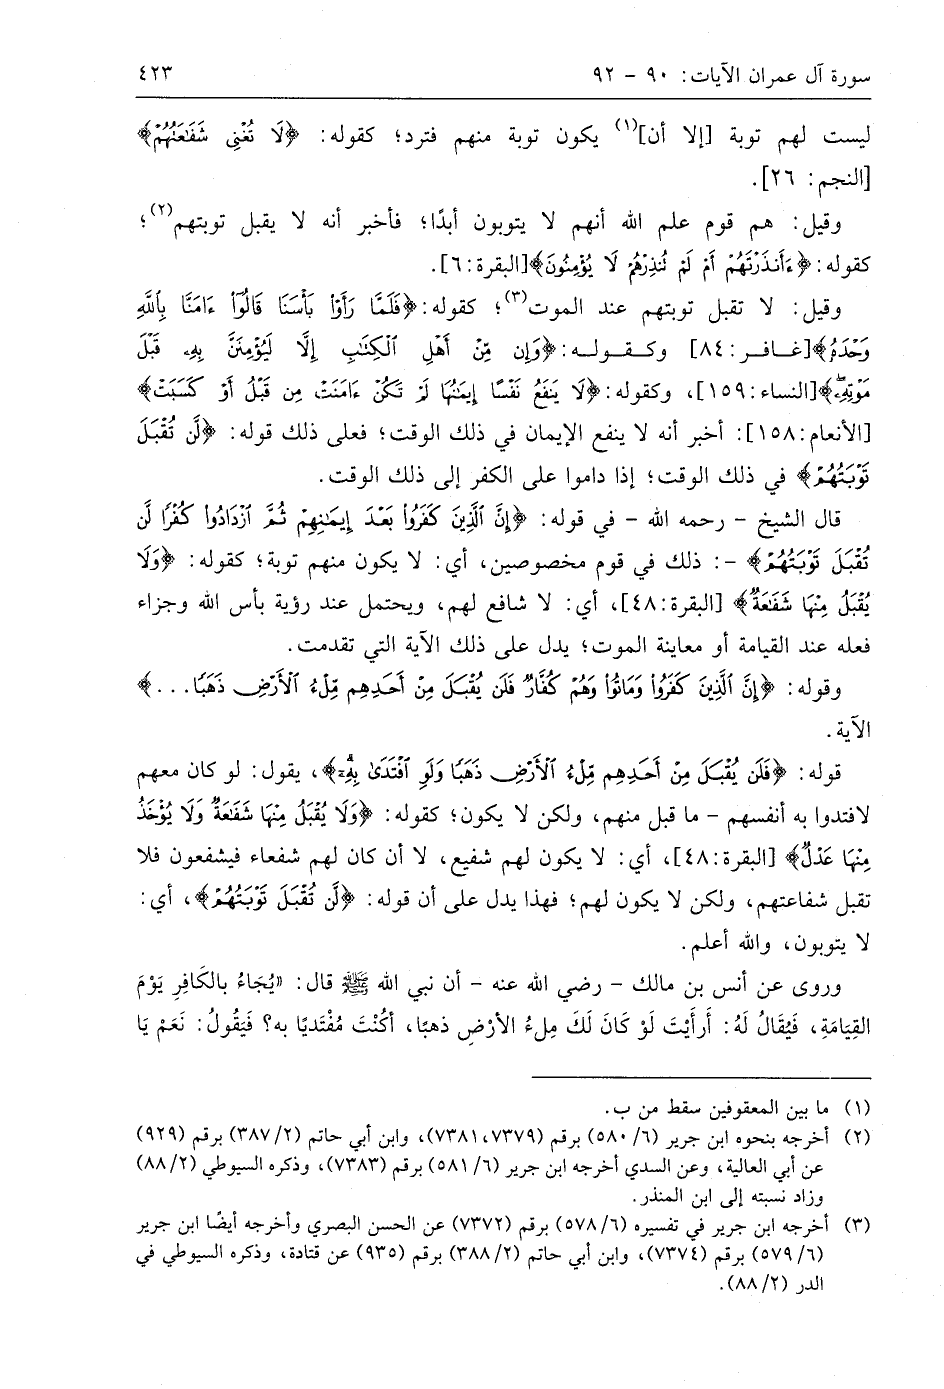 سورة آل عمران الآيات: ٩٠ - ٩٢ ٤٢٣
ليست لهم توبة [إلا أن](١) يكون توبة منهم فترد؛ كقوله: ﴿لَا تُغْنِى شَفَٰعَتُهُمْ﴾
[النجم: ٢٦].
وقيل: هم قوم علم الله أنهم لا يتوبون أبدًا؛ فأخبر أنه لا يقبل توبتهم(٢)؛
كقوله: ﴿ءَأَنذَرْتَهُمْ أَمْ لَمْ تُنذِرْهُمْ لَا يُؤْمِنُونَ﴾[البقرة:٦].
وقيل: لا تقبل توبتهم عند الموت(٣)؛ كقوله: ﴿فَلَمَّا رَأَوْا۟ بَأْسَنَا قَالُوٓا۟ ءَامَنَّا بِٱللَّهِ
وَحْدَهُۥ﴾[غافر:٨٤] وكقوله: ﴿وَإِن مِّنْ أَهْلِ ٱلْكِتَٰبِ إِلَّا لَيُؤْمِنَنَّ بِهِۦ قَبْلَ
مَوْتِهِۦۖ﴾[النساء:١٥٩]، وكقوله: ﴿لَا يَنفَعُ نَفْسًا إِيمَٰنُهَا لَمْ تَكُنْ ءَامَنَتْ مِن قَبْلُ أَوْ كَسَبَتْ﴾
[الأنعام:١٥٨]: أخبر أنه لا ينفع الإيمان في ذلك الوقت؛ فعلى ذلك قوله: ﴿لَّن تُقْبَلَ
تَوْبَتُهُمْ﴾ في ذلك الوقت؛ إذا داموا على الكفر إلى ذلك الوقت.
قال الشيخ - رحمه الله - في قوله: ﴿إِنَّ ٱلَّذِينَ كَفَرُوا۟ بَعْدَ إِيمَٰنِهِمْ ثُمَّ ٱزْدَادُوا۟ كُفْرًا لَّن
تُقْبَلَ تَوْبَتُهُمْ﴾ -: ذلك في قوم مخصوصين، أي: لا يكون منهم توبة؛ كقوله: ﴿وَلَا
يُقْبَلُ مِنْهَا شَفَٰعَةٌ﴾ [البقرة:٤٨]، أي: لا شافع لهم، ويحتمل عند رؤية بأس الله وجزاء
فعله عند القيامة أو معاينة الموت؛ يدل على ذلك الآية التي تقدمت.
وقوله: ﴿إِنَّ ٱلَّذِينَ كَفَرُوا۟ وَمَاتُوا۟ وَهُمْ كُفَّارٌ فَلَن يُقْبَلَ مِنْ أَحَدِهِم مِّلْءُ ٱلْأَرْضِ ذَهَبًا...﴾
الآية.
قوله: ﴿فَلَن يُقْبَلَ مِنْ أَحَدِهِم مِّلْءُ ٱلْأَرْضِ ذَهَبًا وَلَوِ ٱفْتَدَىٰ بِهِۦٓ﴾، يقول: لو كان معهم
لافتدوا به أنفسهم - ما قبل منهم، ولكن لا يكون؛ كقوله: ﴿وَلَا يُقْبَلُ مِنْهَا شَفَٰعَةٌ وَلَا يُؤْخَذُ
مِنْهَا عَدْلٌ﴾ [البقرة:٤٨]، أي: لا يكون لهم شفيع، لا أن كان لهم شفعاء فيشفعون فلا
تقبل شفاعتهم، ولكن لا يكون لهم؛ فهذا يدل على أن قوله: ﴿لَّن تُقْبَلَ تَوْبَتُهُمْ﴾، أي:
لا يتوبون، والله أعلم.
وروى عن أنس بن مالك - رضي الله عنه - أن نبي الله ﷺ قال: «يُجَاءُ بالكَافِرِ يَوْمَ
القِيَامَةِ، فَيُقَالُ لَهُ: أَرَأَيْتَ لَوْ كَانَ لَكَ مِلءُ الأرْضِ ذهبًا، أكُنْتَ مُفْتَديًا به؟ فَيَقُولُ: نَعَمْ يَا
(١) ما بين المعقوفين سقط من ب.
(٢) أخرجه بنحوه ابن جرير (٦/ ٥٨٠) برقم (٧٣٧٩، ٧٣٨١)، وابن أبي حاتم (٢/ ٣٨٧) برقم (٩٢٩)
عن أبي العالية، وعن السدي أخرجه ابن جرير (٦/ ٥٨١) برقم (٧٣٨٣)، وذكره السيوطي (٢/ ٨٨)
وزاد نسبته إلى ابن المنذر.
(٣) أخرجه ابن جرير في تفسيره (٦/ ٥٧٨) برقم (٧٣٧٢) عن الحسن البصري وأخرجه أيضًا ابن جرير
(٦/ ٥٧٩) برقم (٧٣٧٤)، وابن أبي حاتم (٢/ ٣٨٨) برقم (٩٣٥) عن قتادة، وذكره السيوطي في
الدر (٢/ ٨٨).